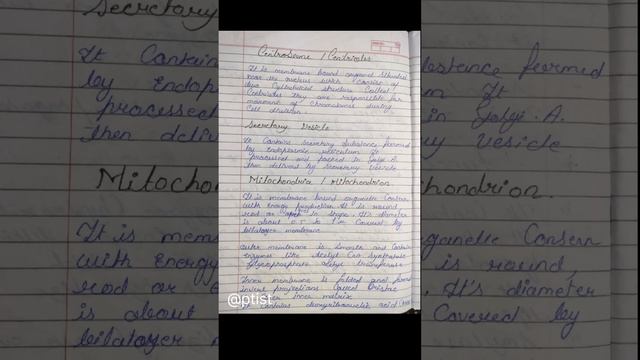 Centrosome / Centrioles
It is membrane bound organel situated
near the nucleus which consists of
two Cylindrical structure Called
Centrioles they are responsible for
moment of Chromosomes during
Cell division
Secretary Vesicle
It Contains secretary substance formed
by Endoplasmic reticulum It
processed and packed in Golgi A.
then delivered by Secretary Vesicle
Mitochondria / Mitochondrion.
It is membrane bound organelle Concern
with Energy production. It is round
rod or in shape. It's diameter
is about 0.5 to Covered by
bilatoyer membrane
outer membrane is smooth and Contain
enzymes like Acetyl Coa synthatase
Glycerophosphate acetyl transferase
Inner membrane is folded and formed
inward projections Called Cristae
inner matrix
It contains deoxyribonucleic acid (DNA)
@ptist